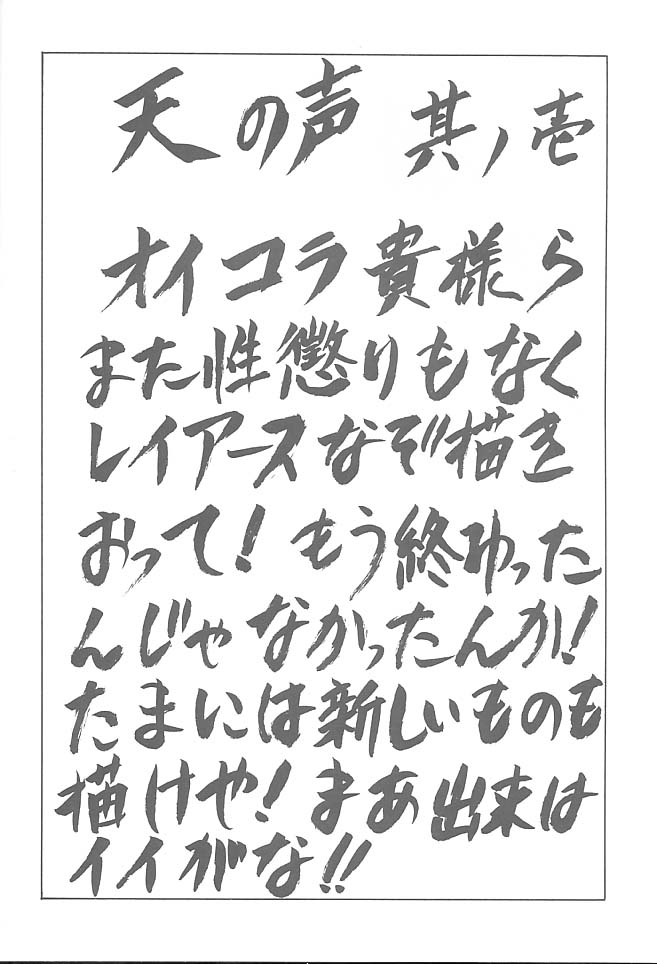 天の声 其ノ壱
オイコラ貴様ら
また性懲りもなく
レイアースなぞ描き
おって!もう終わった
んじゃなかったんか!
たまには新しいものも
描けや!まあ出来は
イイがな!!